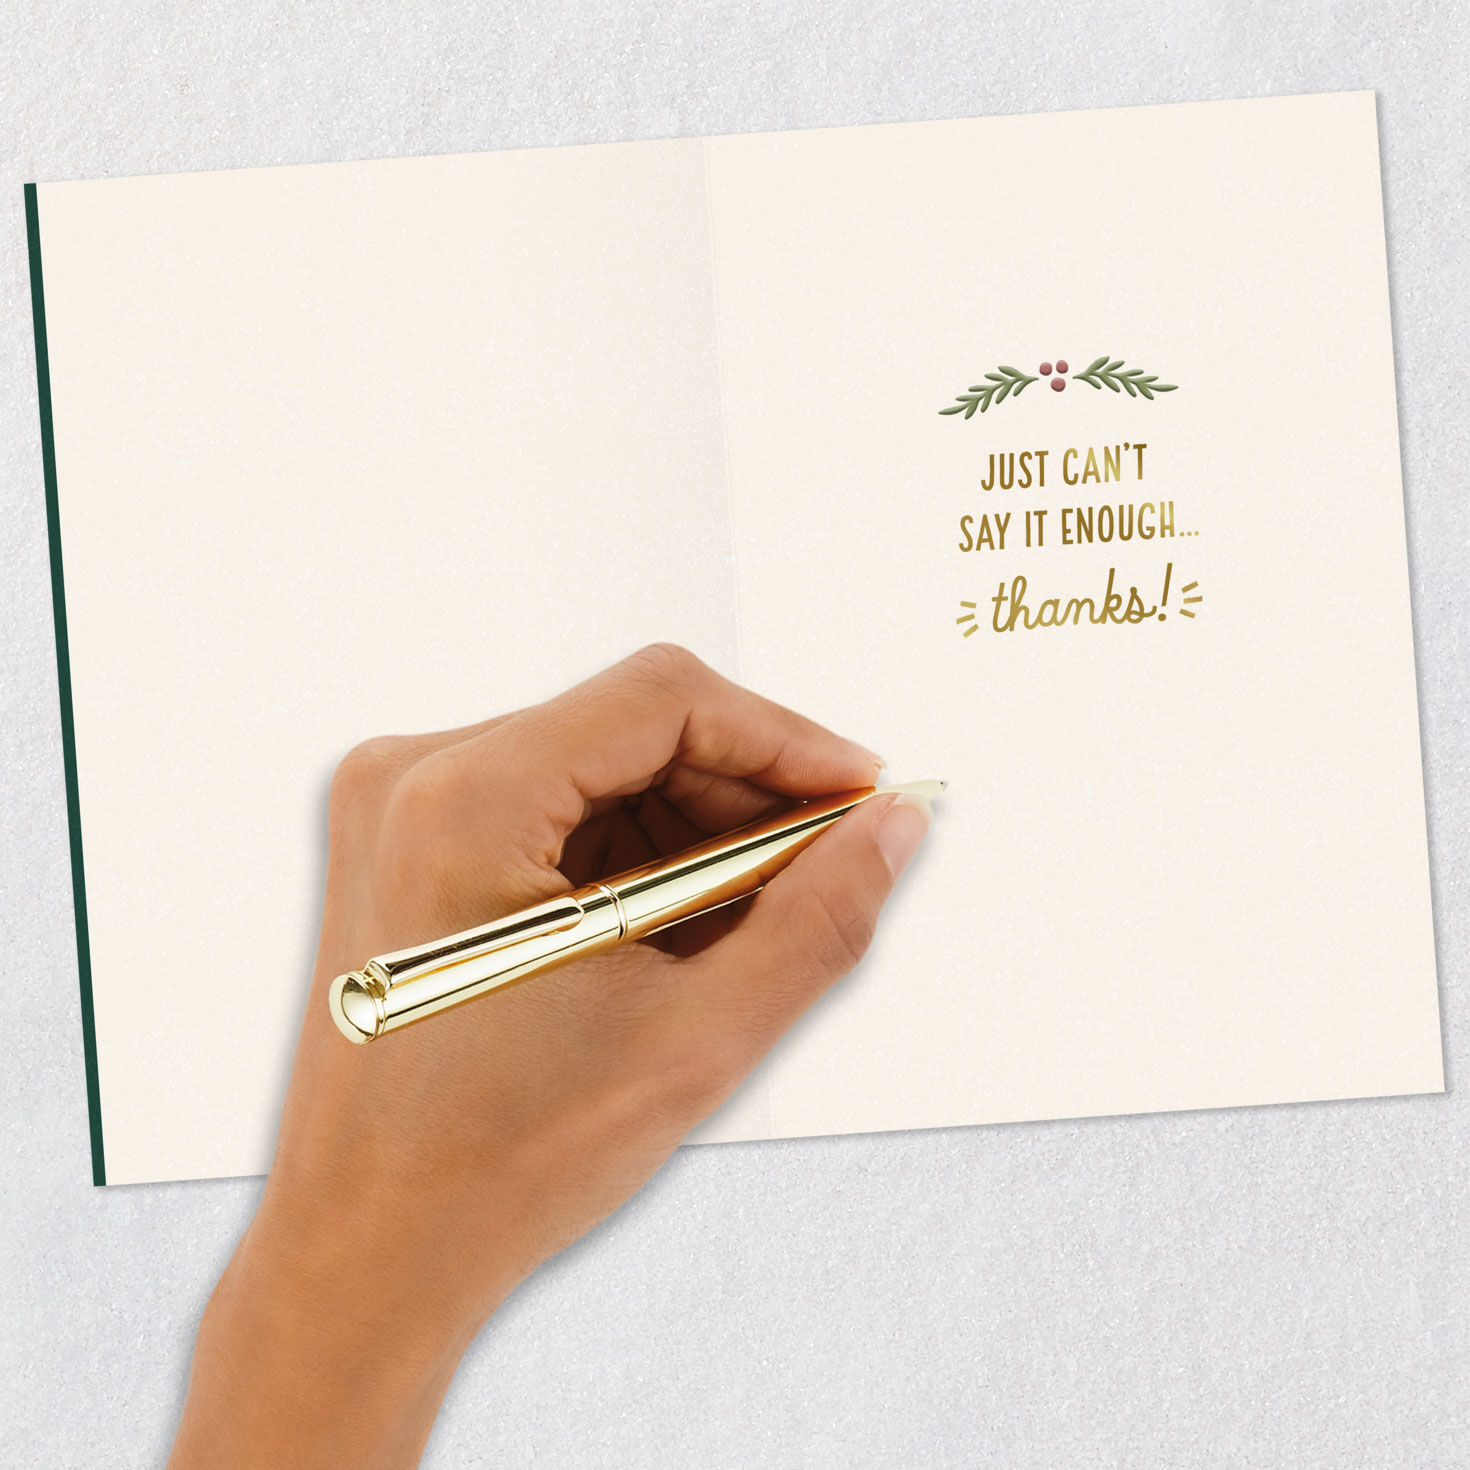 JUST CAN'T
SAY IT ENOUGH...
thanks!